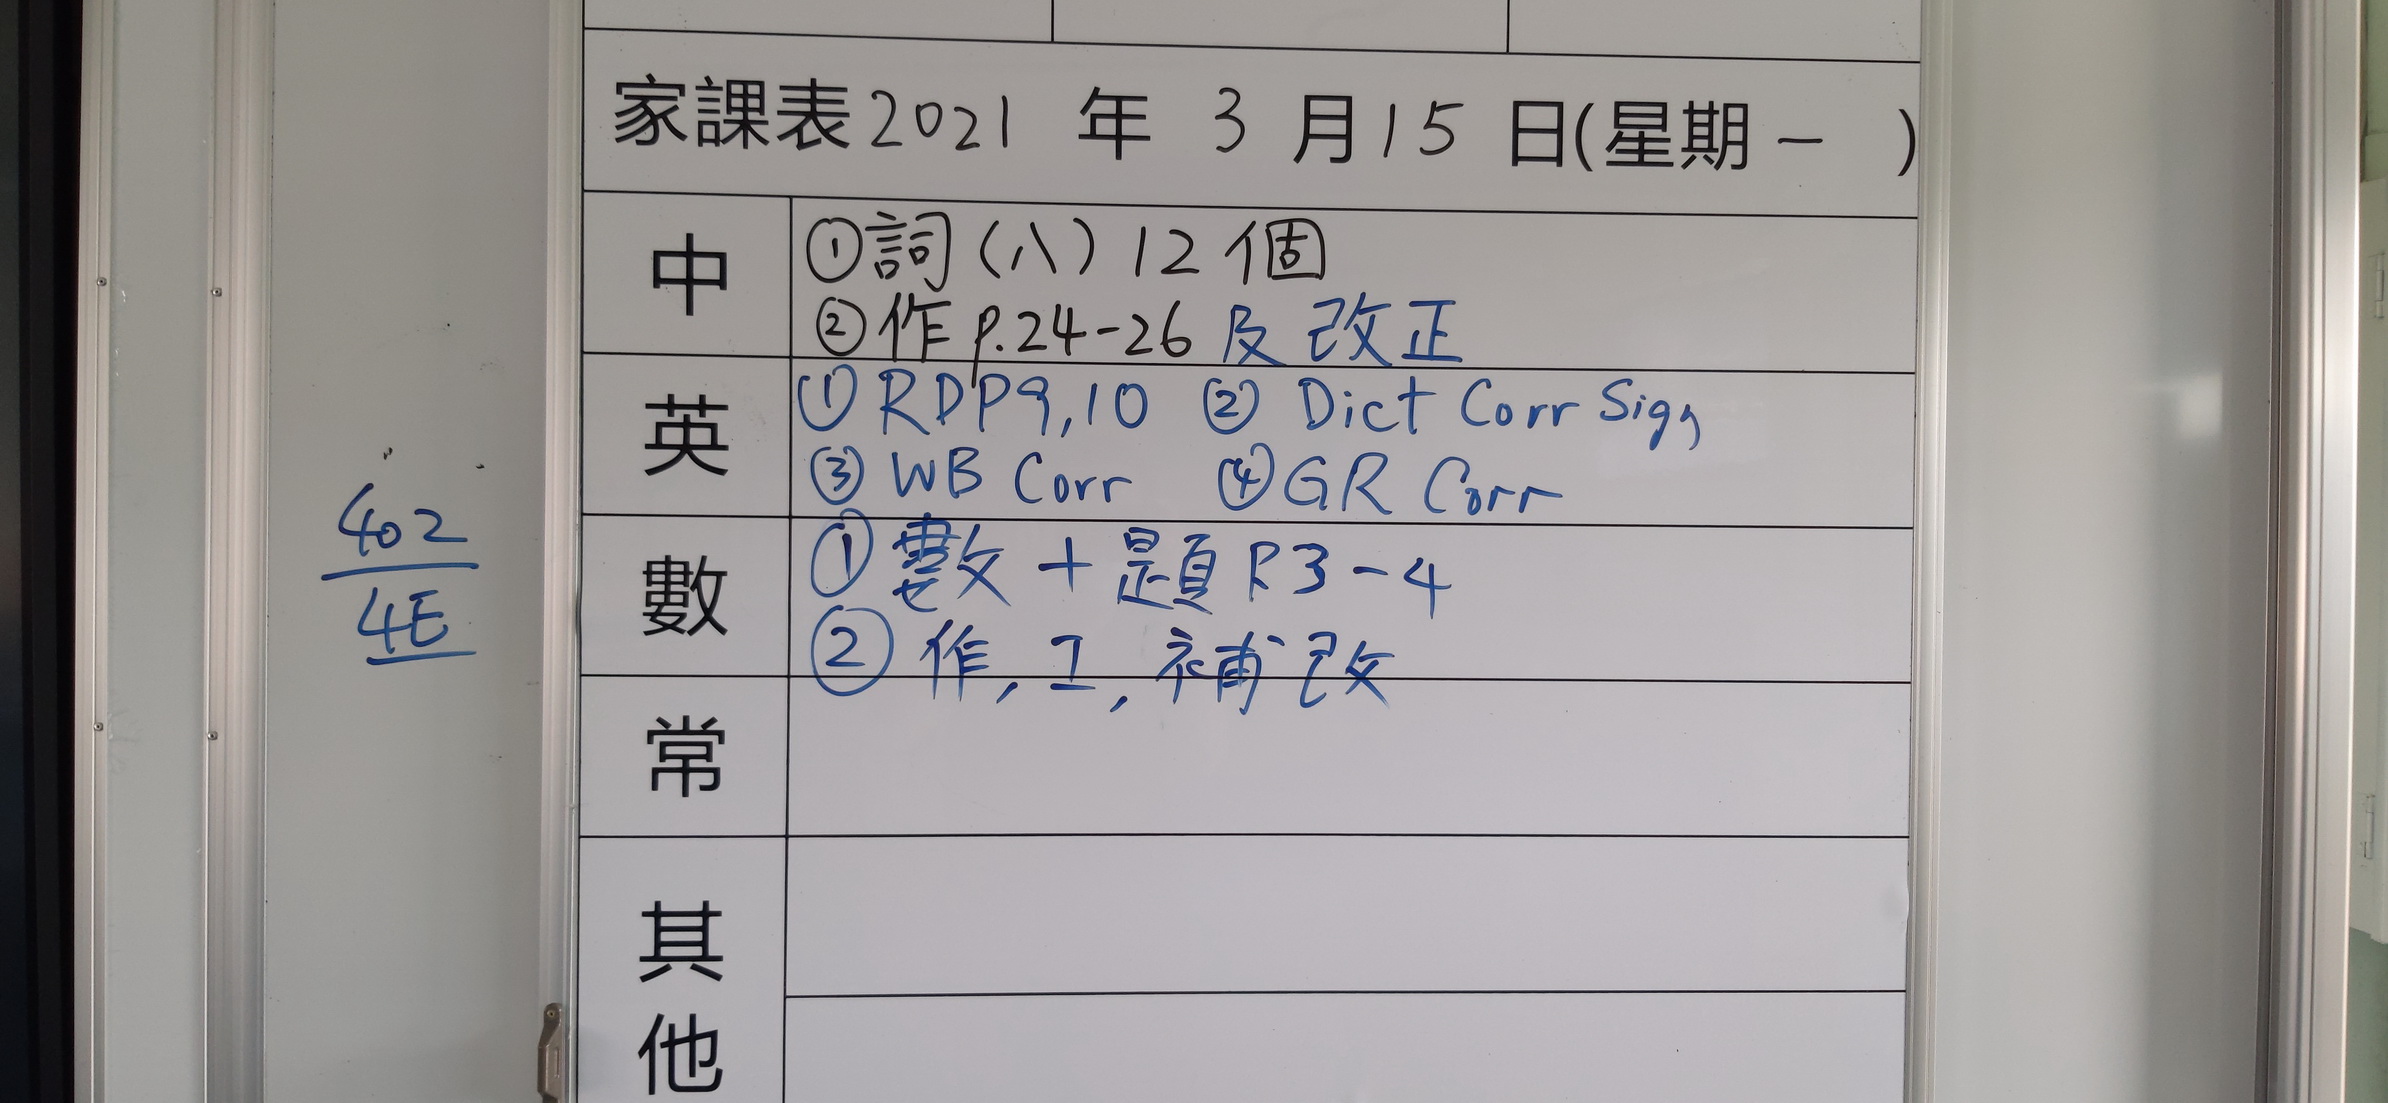 家課表2021 年 3 月15 日(星期一 )
中
①詞(八)12個
②作p.24-26及改正
英
①RDP9,10 ②Dict Corr Sign
③WB Corr ④GR Corr
402
4E
數
①數+題P.3-4
②作,工,補改
常
其
他